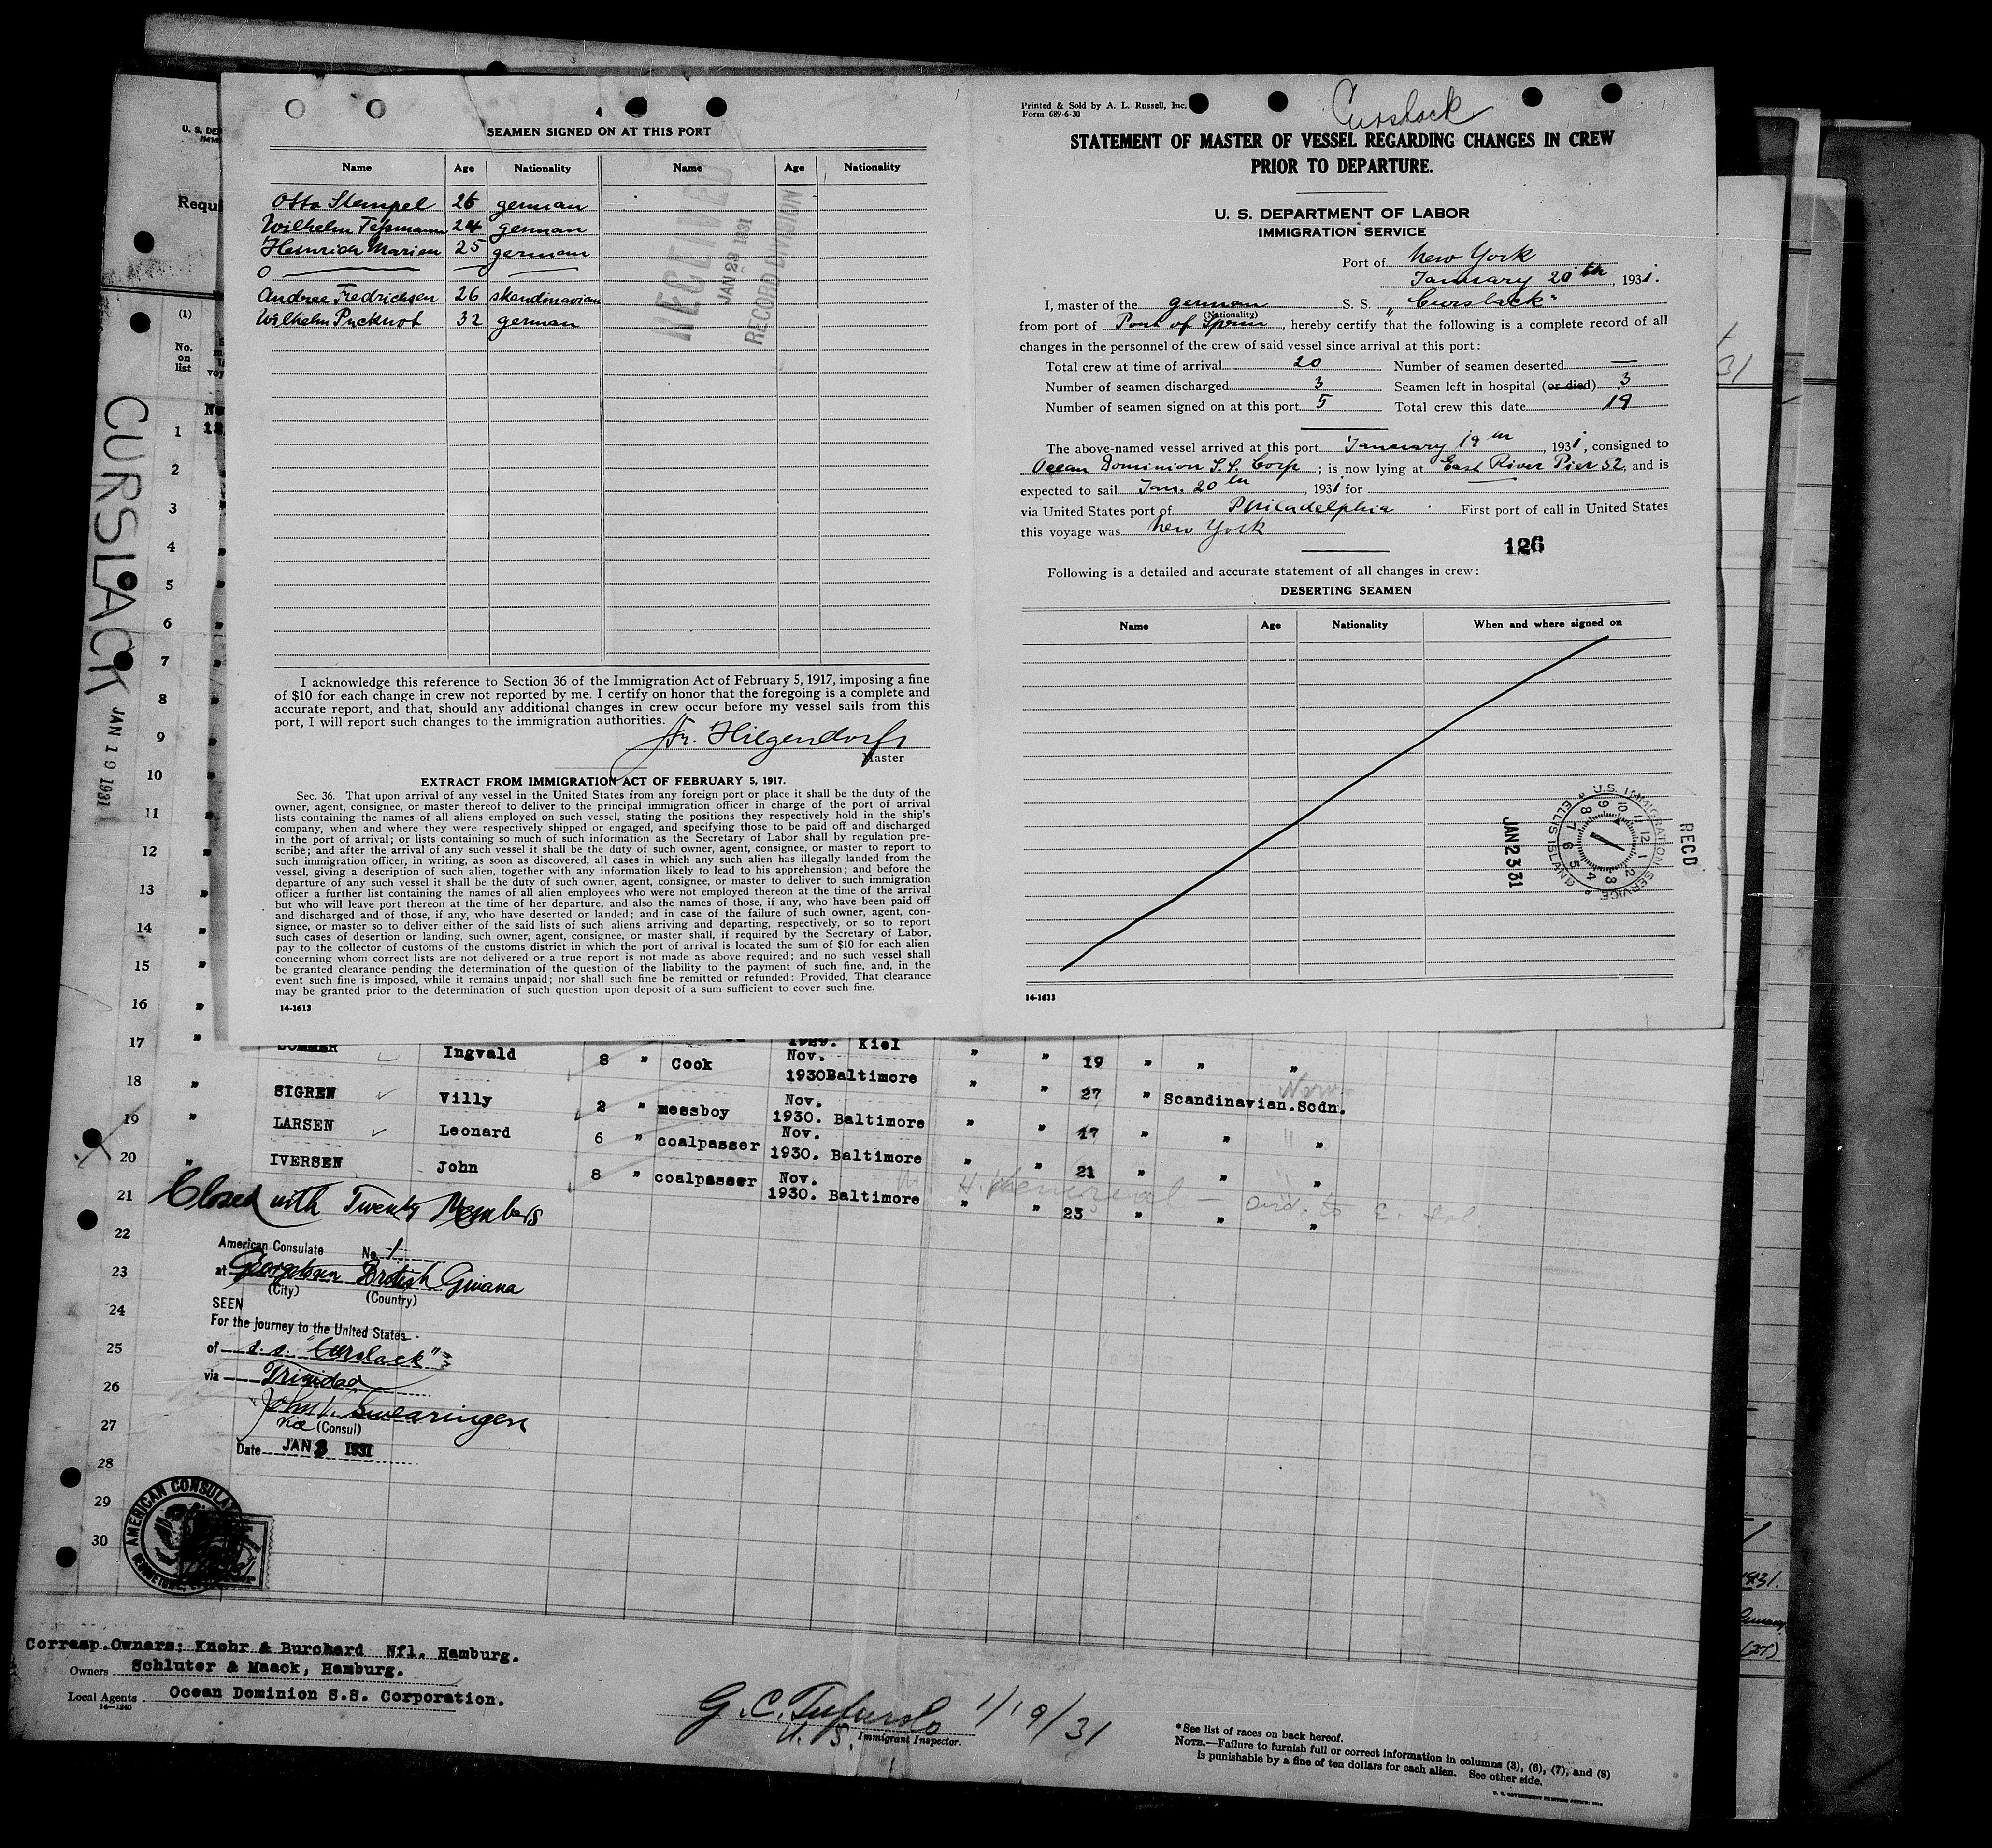 4
SEAMEN SIGNED ON AT THIS PORT
Name Age Nationality Name Age Nationality
Otto Stempel 26 german
Wilhelm Teßmann 24 german
Heinrich Marien 25 german
Andree Fredrichsen 26 skandinavian
Wilhelm Pucknot 32 german
RECEIVED
JAN 28 1931
RECORD DIVISION
I acknowledge this reference to Section 36 of the Immigration Act of February 5, 1917, imposing a fine
of $10 for each change in crew not reported by me. I certify on honor that the foregoing is a complete and
accurate report, and that, should any additional changes in crew occur before my vessel sails from this
port, I will report such changes to the immigration authorities.
Fr. Hilgendorf
Master
EXTRACT FROM IMMIGRATION ACT OF FEBRUARY 5, 1917.
Sec. 36. That upon arrival of any vessel in the United States from any foreign port or place it shall be the duty of the
owner, agent, consignee, or master thereof to deliver to the principal immigration officer in charge of the port of arrival
lists containing the names of all aliens employed on such vessel, stating the positions they respectively hold in the ship's
company, when and where they were respectively shipped or engaged, and specifying those to be paid off and discharged
in the port of arrival; or lists containing so much of such information as the Secretary of Labor shall by regulation pre-
scribe; and after the arrival of any such vessel it shall be the duty of such owner, agent, consignee, or master to report to
such immigration officer, in writing, as soon as discovered, all cases in which any such alien has illegally landed from the
vessel, giving a description of such alien, together with any information likely to lead to his apprehension; and before the
departure of any such vessel it shall be the duty of such owner, agent, consignee, or master to deliver to such immigration
officer a further list containing the names of all alien employees who were not employed thereon at the time of the arrival
but who will leave port thereon at the time of her departure, and also the names of those, if any, who have been paid off
and discharged and of those, if any, who have deserted or landed; and in case of the failure of such owner, agent, con-
signee, or master so to deliver either of the said lists of such aliens arriving and departing, respectively, or so to report
such cases of desertion or landing, such owner, agent, consignee, or master shall, if required by the Secretary of Labor,
pay to the collector of customs of the customs district in which the port of arrival is located the sum of $10 for each alien
concerning whom correct lists are not delivered or a true report is not made as above required; and no such vessel shall
be granted clearance pending the determination of the question of the liability to the payment of such fine, and, in the
event such fine is imposed, while it remains unpaid; nor shall such fine be remitted or refunded: Provided, That clearance
may be granted prior to the determination of such question upon deposit of a sum sufficient to cover such fine.
14-1613
Printed & Sold by A. L. Russell, Inc.
Form 689-6-30
Curslack
STATEMENT OF MASTER OF VESSEL REGARDING CHANGES IN CREW
PRIOR TO DEPARTURE.
U. S. DEPARTMENT OF LABOR
IMMIGRATION SERVICE
Port of New York
January 20th, 1931.
I, master of the german S. S. "Curslack"
(Nationality)
from port of Port of Spain, hereby certify that the following is a complete record of all
changes in the personnel of the crew of said vessel since arrival at this port:
Total crew at time of arrival 20 Number of seamen deserted —
Number of seamen discharged 3 Seamen left in hospital (or died) 3
Number of seamen signed on at this port 5 Total crew this date 19
The above-named vessel arrived at this port January 19th, 1931, consigned to
Ocean Dominion S.S. Corp; is now lying at East River Pier 52, and is
expected to sail Jan. 20th, 1931 for
via United States port of Philadelphia. First port of call in United States
this voyage was New York
126
Following is a detailed and accurate statement of all changes in crew:
DESERTING SEAMEN
Name Age Nationality When and where signed on
U.S. IMMIGRATION SERVICE ELLIS ISLAND
REC'D
JAN 23 31
14-1613
CURSLACK
JAN 19 1931
U. S. DE
Requi
(1)
No.
on
list
1
2
3
4
5
6
7
8
9
10
11
12
13
14
15
16
17 " Ingvald 8 " Cook Nov. 1930 Baltimore " " 19 " " "
1929. Kiel
18 " SIGREN Villy 2 " messboy Nov. 1930. Baltimore " " 27 " Scandinavian. Scdn.
19 " LARSEN Leonard 6 " coalpasser Nov. 1930. Baltimore " " 17 " " "
20 " IVERSEN John 8 " coalpasser Nov. 1930. Baltimore " " 21 " " "
" " 23 " " "
21 Closed with Twenty Members
22
23
24
25
26
27
28
29
30
American Consulate No. 1
at Georgetown British Guiana
(City) (Country)
SEEN
For the journey to the United States
of s.s. "Curslack"
via Trinidad
John L. Swearingen
vice (Consul)
Date JAN 3 1931
AMERICAN CONSULATE
Corresp. Owners: Knohr & Burchard Nfl. Hamburg.
Owners Schluter & Maack, Hamburg.
Local Agents Ocean Dominion S.S. Corporation.
14—1240
1/19/31
U. S. Immigrant Inspector.
*See list of races on back hereof.
NOTE.—Failure to furnish full or correct information in columns (3), (6), (7), and (8)
is punishable by a fine of ten dollars for each alien. See other side.
U. S. GOVERNMENT PRINTING OFFICE: 1930